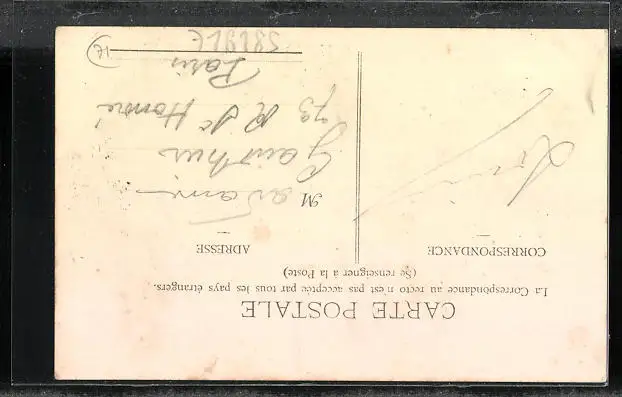 CARTE POSTALE
La Correspondance au recto n'est pas acceptée par tous les pays étrangers.
(Se renseigner à la Poste)
CORRESPONDANCE
ADRESSE
M
Gauthier
73 R St Honoré
Paris